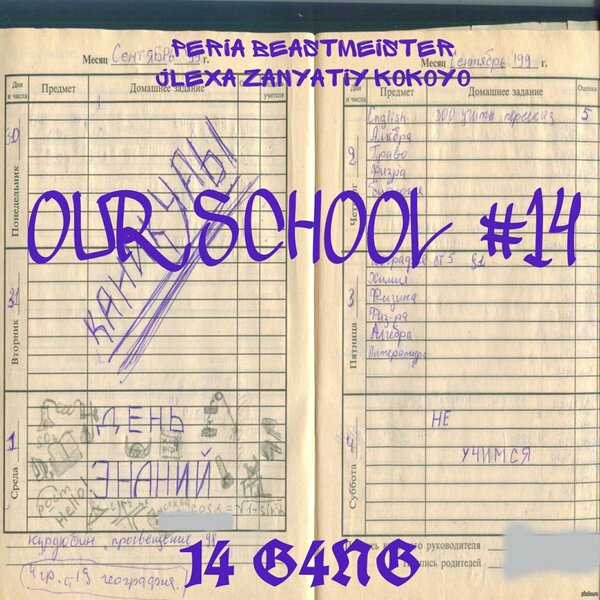 PERIA BEASTMEISTER
JLEXA ZANYATIY KOKOYO
OUR SCHOOL #14
14 G4NG
Месяц Сентябрь г.
Дни и числа
Предмет
Домашнее задание
учителя
Понедельник
КАНИКУЛЫ
31
Вторник
1
Среда
ДЕНЬ
ЗНАНИЙ
Hello!
просвещение 98
4 гр. ст 19 география.
Месяц Сентябрь 199 г.
Дни и числа
Предмет
Домашнее задание
Оценка
2
Четверг
English
учить пересказ
5
Алгебра
Право
Физра
3
Пятница
ст 5 §1
Химия
Физика
Физ-ра
Алгебра
Литература
4
Суббота
НЕ
УЧИМСЯ
руководителя
родителей